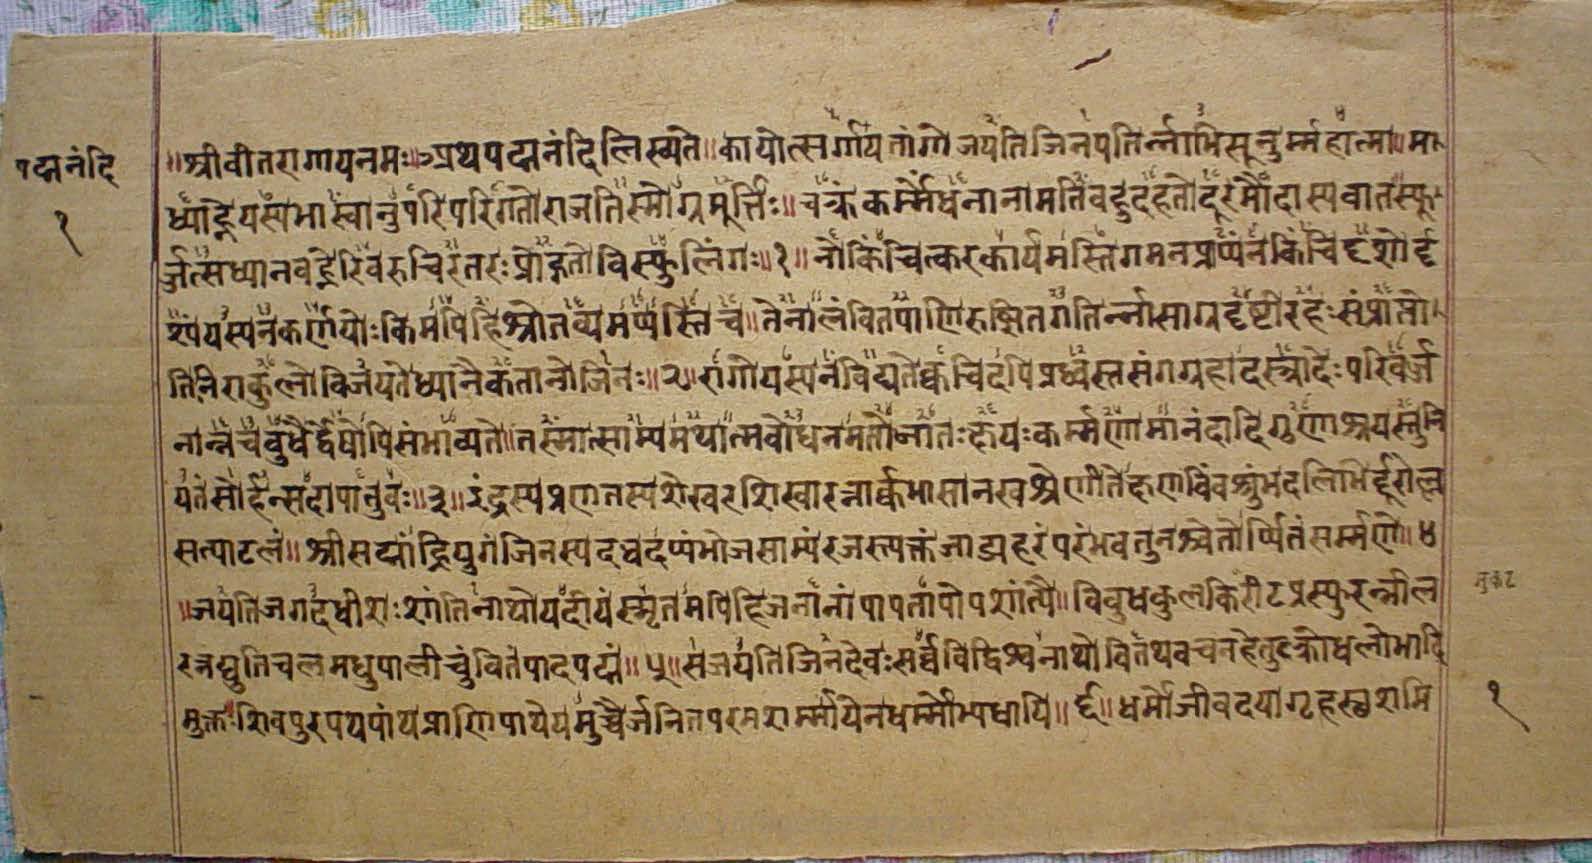 पद्मनंदि
१
॥श्रीवीतरागायनमः॥अथपद्मनंदिलिख्यते॥कायोत्सर्गायतांगोजयतिजिनपतिर्न्नाभिसूनुर्म्महात्मा॥मा
ध्याह्नेयस्यभास्वानुपरिपरिगतोराजतिस्मोग्रमूर्त्तिः॥चक्रंकर्म्मेंधनानामतिबहुदहतोदूरमौदास्यवातस्फू
र्ज्जत्सध्यानवह्नेरिवरुचिरतरःप्रोद्गतोविस्फुलिंगः॥१॥नोकिंचित्करकार्यमस्तिगमनप्राप्यंनकिंचिदृशोर्दृ
श्यंयस्यनकर्णयोःकिमपिहिश्रोतव्यमप्यस्तिच॥तेनालंवितपाणिरुझितगतिर्न्नासाग्रदृष्टीरहःसंप्राप्तो
तिनिराकुलोविजयतेध्यानैकतानोजिनः॥२॥रागोयस्यनविद्यतेक्वचिदपिप्रध्वस्तसंगग्रहादस्त्रादेःपरिवर्ज
नान्नचबुधैर्द्वेषोपिसंभाव्यते॥तस्मात्साम्यमथात्मबोधनमतोजातःक्षयःकर्म्मणामानंदादिगुणाश्रयस्तुनि
यतंसोर्हन्सदापातुवः॥३॥इंद्रस्यप्रणतस्यशेखरशिखारत्नार्क्कभासानखश्रेणीतेक्षणबिंबशुंभदलिभिर्दूरोल्ल
सत्पाटलं॥श्रीसद्मांह्रियुगंजिनस्यदधदप्यंभोजसाम्यंरजस्त्यक्तंजाड्यहरंपरंभवतुनश्चेतोर्प्पितंसर्म्मणे॥४
॥जयतिजगदधीशःशांतिनाथोयदीयंस्मृतमपिहिजनानांपापतापोपशांत्यै॥विबुधकुलकिरीटप्रस्फुरन्नील
मुकुट
रत्नद्युतिचलमधुपालीचुंवितंपादपद्मं॥५॥सजयतिजिनदेवःसर्व्वविद्विश्वनाथोवितथवचनहेतुक्रोधलोभादि
मुक्तःशिवपुरपथपांथप्राणिपाथेयमुच्चैर्जनितपरमशर्म्मायेनधर्म्मोभ्यधायि॥६॥धर्मोजीवदयागृहस्थशमि
१